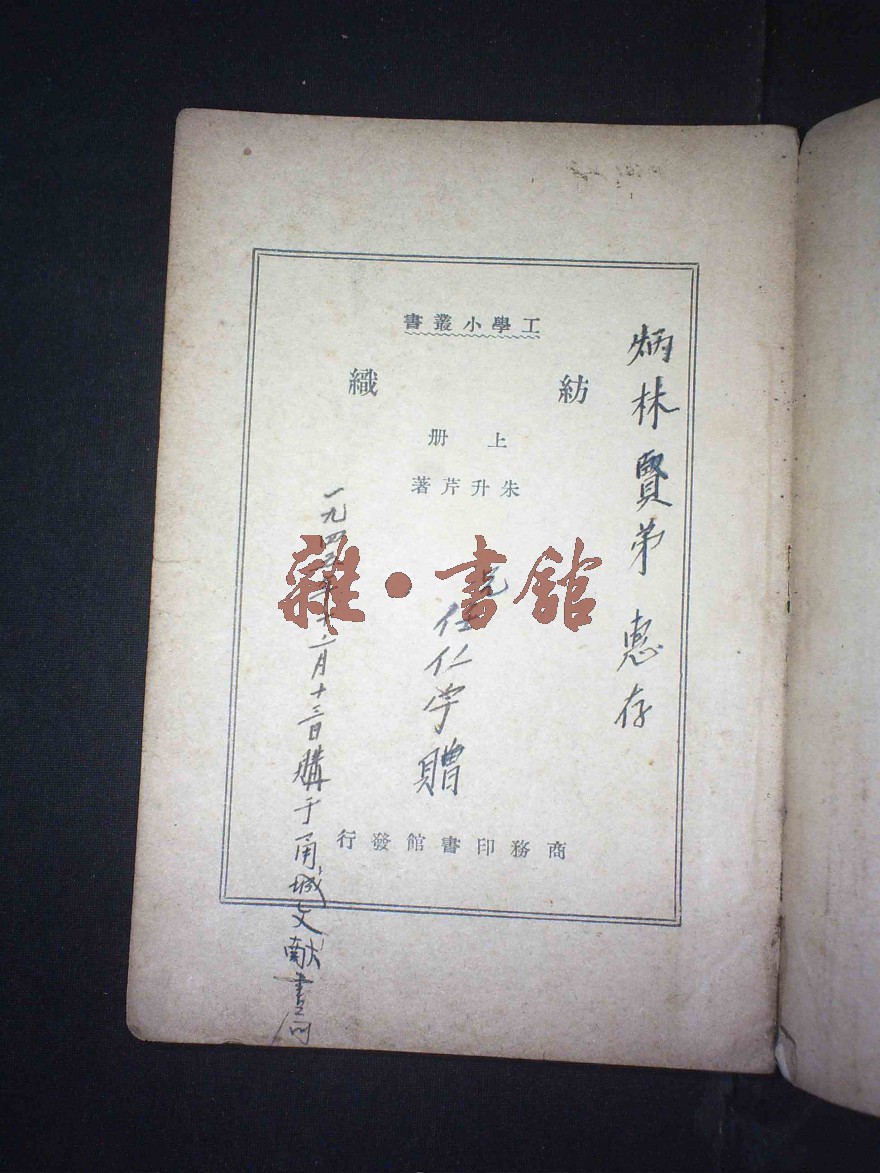 工學小叢書
紡織
上册
朱升芹著
商務印書館發行
炳林賢弟 惠存
任仁学贈
一九四 年十二月十三日購于甬城文献書局
雜·書館